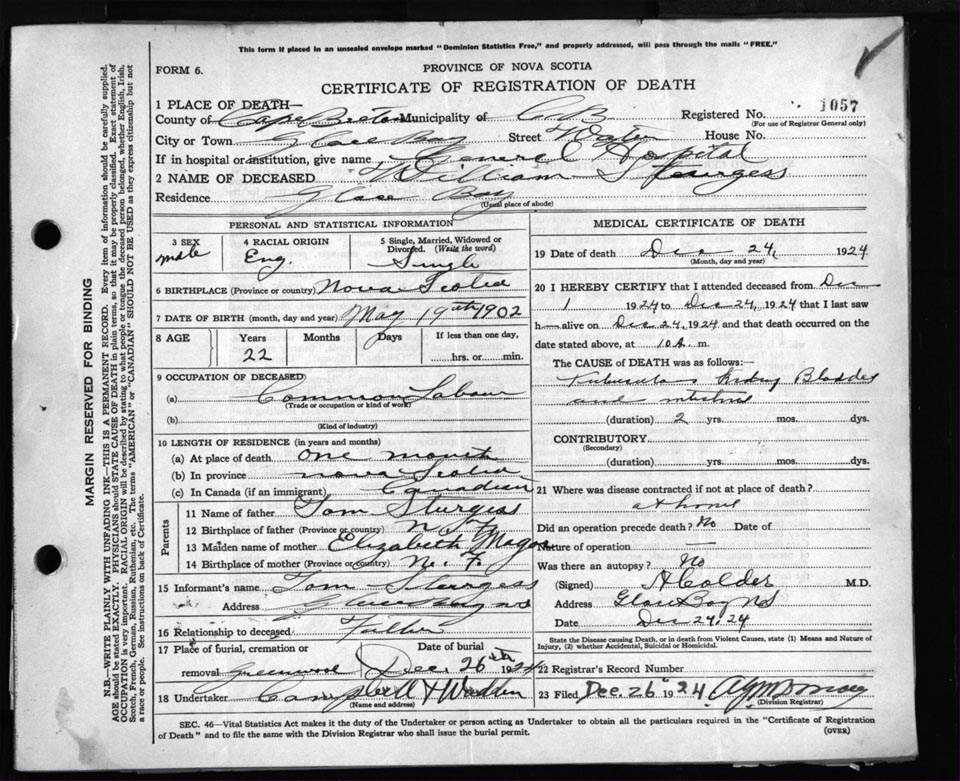 This form if placed in an unsealed envelope marked "Dominion Statistics Free," and properly addressed, will pass through the mails "FREE."
FORM 6.
PROVINCE OF NOVA SCOTIA
CERTIFICATE OF REGISTRATION OF DEATH
1 PLACE OF DEATH—
County of Cape Breton Municipality of C B Registered No. 1057
(For use of Registrar General only)
City or Town Glace Bay Street Water House No.
If in hospital or institution, give name General Hospital
2 NAME OF DECEASED William Sturgess
Residence Glace Bay
(Usual place of abode)
PERSONAL AND STATISTICAL INFORMATION
3 SEX male
4 RACIAL ORIGIN Eng.
5 Single, Married, Widowed or Divorced. (Write the word) Single
6 BIRTHPLACE (Province or country) Nova Scotia
7 DATE OF BIRTH (month, day and year) May 19th 1902
8 AGE Years Months Days If less than one day,
22 hrs. or min.
9 OCCUPATION OF DECEASED:
(a) Common Labour
(Trade or occupation or kind of work)
(b)
(Kind of industry)
10 LENGTH OF RESIDENCE (in years and months)
(a) At place of death one month
(b) In province nova Scotia
(c) In Canada (if an immigrant) Canadian
Parents
11 Name of father Tom Sturgess
12 Birthplace of father (Province or country) N.F.
13 Maiden name of mother Elizabeth
14 Birthplace of mother (Province or country) N. F.
15 Informant's name Tom Sturgess
Address Glace Bay NS
16 Relationship to deceased Father
17 Place of burial, cremation or removal Greenwood
Date of burial Dec. 26th 1924
18 Undertaker Campbell & Wadden
(Name and address)
MEDICAL CERTIFICATE OF DEATH
19 Date of death Dec 24, 1924
(Month, day and year)
20 I HEREBY CERTIFY that I attended deceased from Dec
1 1924 to Dec 24, 1924 that I last saw
h alive on Dec 24, 1924 and that death occurred on the
date stated above, at 10 A. m.
The CAUSE of DEATH was as follows:—
Tuberculous Kidney Bladder
and intestine
(duration) 2 yrs. mos. dys.
CONTRIBUTORY
(Secondary)
(duration) yrs. mos. dys.
21 Where was disease contracted if not at place of death?
at home
Did an operation precede death? No Date of
Nature of operation —
Was there an autopsy? No
(Signed) A Calder M.D.
Address Glace Bay NS
Date Dec 24, 24
State the Disease causing Death, or in death from Violent Causes, state (1) Means and Nature of Injury, (2) whether Accidental, Suicidal or Homicidal.
22 Registrar's Record Number
23 Filed Dec. 26 1924
(Division Registrar)
SEC. 46—Vital Statistics Act makes it the duty of the Undertaker or person acting as Undertaker to obtain all the particulars required in the "Certificate of Registration
of Death" and to file the same with the Division Registrar who shall issue the burial permit.
(OVER)
MARGIN RESERVED FOR BINDING
N.B.—WRITE PLAINLY WITH UNFADING INK—THIS IS A PERMANENT RECORD. Every item of information should be carefully supplied.
AGE should be stated EXACTLY. PHYSICIANS should STATE CAUSE OF DEATH in plain terms, so that it may be properly classified. Exact statement of
OCCUPATION is very important. RACIAL ORIGIN will be described by stating to what people or tongue the deceased person belonged, whether English, Irish,
Scotch, French, German, Russian, Ruthenian, etc. The terms "AMERICAN" or "CANADIAN" SHOULD NOT BE USED as they express citizenship but not
a race or people. See instructions on back of Certificate.